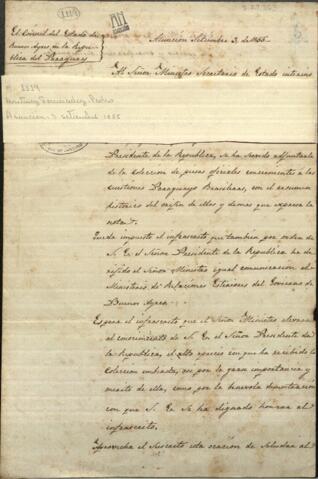 El Consul del Estado de
Buenos Ayres en la Repu-
blica del Paraguay
Asuncion Setiembre 3, de 1855.
Al Señor Ministro Secretario de Estado interino
Asuncion - 3 setiembre 1855
Presidente de la Republica, se ha servido adjuntarle
de la coleccion de piezas oficiales concerniente a las
cuestiones Paraguayo Brasileras, con el resumen
historico del origen de ellas y demas que expresa la
nota.
Queda impuesto el infrascripto que tambien por orden de
S. E. el Señor Presidente de la Republica ha di-
rijido el Señor Ministro igual comunicacion al
Ministerio de Relaciones Exteriores del Gobierno de
Buenos Ayres.
Espera el infrascripto que el Señor Ministro elevará
al conocimiento de S. E. el Señor Presidente de
la Republica, el alto aprecio con que ha recibido la
coleccion enviada, ya por la gran importancia y
merito de ella, como por la benevola demostracion
con que S. E. se ha dignado honrar al
infrascripto.
Aprovecha el suscrito esta ocasion de saludar al